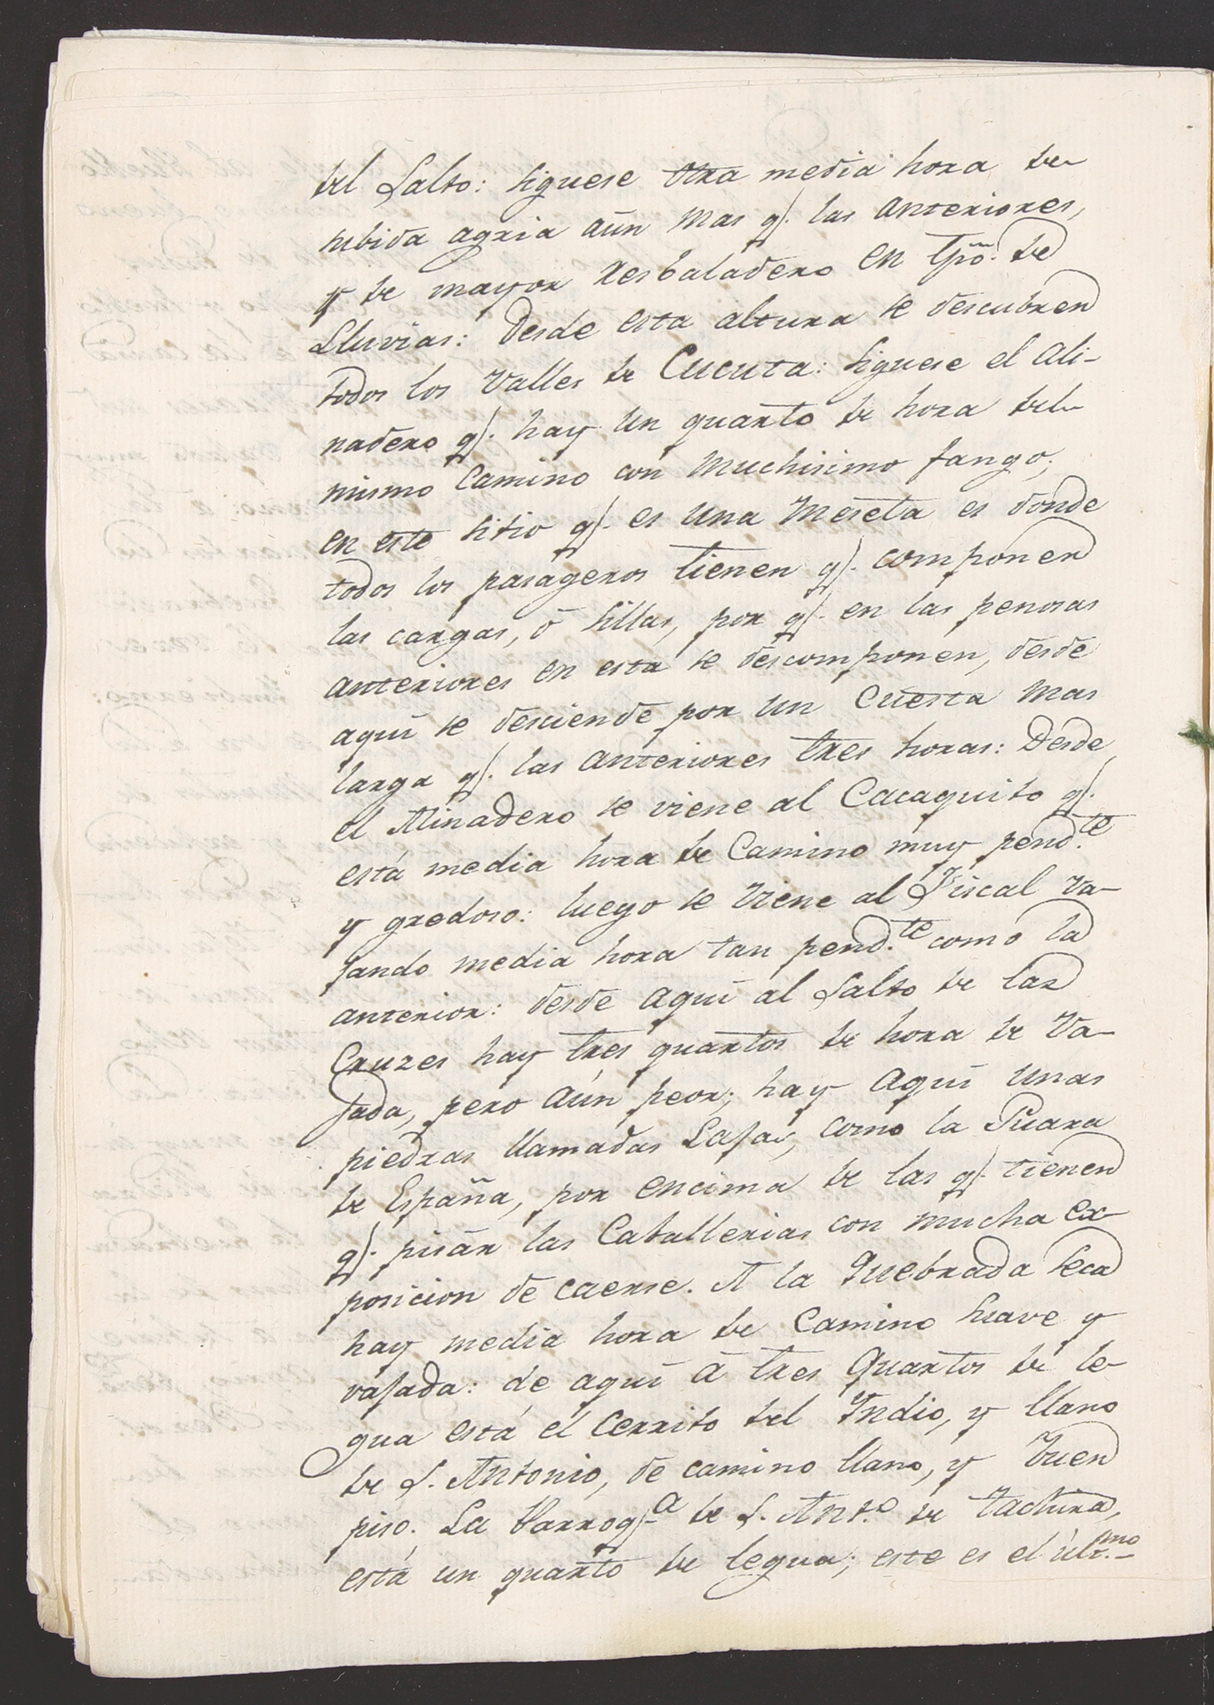 del Salto: siguese otra media hora de
subida agria aún mas q.e las anteriores,
y de mayor resbaladero en tpõ. de
Lluvias: desde esta altura se descubren
todos los Valles de Cucuta: siguese el Ali-
nadero q.e hay un quarto de hora del
mismo Camino con muchisimo fango;
en este sitio q.e es una Meseta es donde
todos los pasageros tienen q.e componer
las cargas, ó sillas, por q.e en las penosas
anteriores en esta se descomponen, desde
aqui se desciende por un Cuesta mas
larga q.e las anteriores tres horas: Desde
el Alinadero se viene al Cacaquito q.e
está media hora de Camino muy pend.te
y gredoso: luego se viene al Fiscal va-
jando media hora tan pend.te como la
anterior: desde aqui al Salto de las
Cruzes hay tres quartos de hora de Va-
jada, pero aún peor; hay aqui unas
piedras llamadas Lajas, como la
de España, por encima de las q.e tienen
q.e pisar las Caballerias con mucha ex-
posicion de caerse. A la Quebrada seca
hay media hora de Camino suave y
vajada: de aqui á tres quartos de le-
gua está el Cerrito del Indio, y llano
de S. Antonio, de camino llano, y buen
piso. La Parroq.a de S. Ant.o de Tachira,
está un quarto de legua; este es el últ.mo